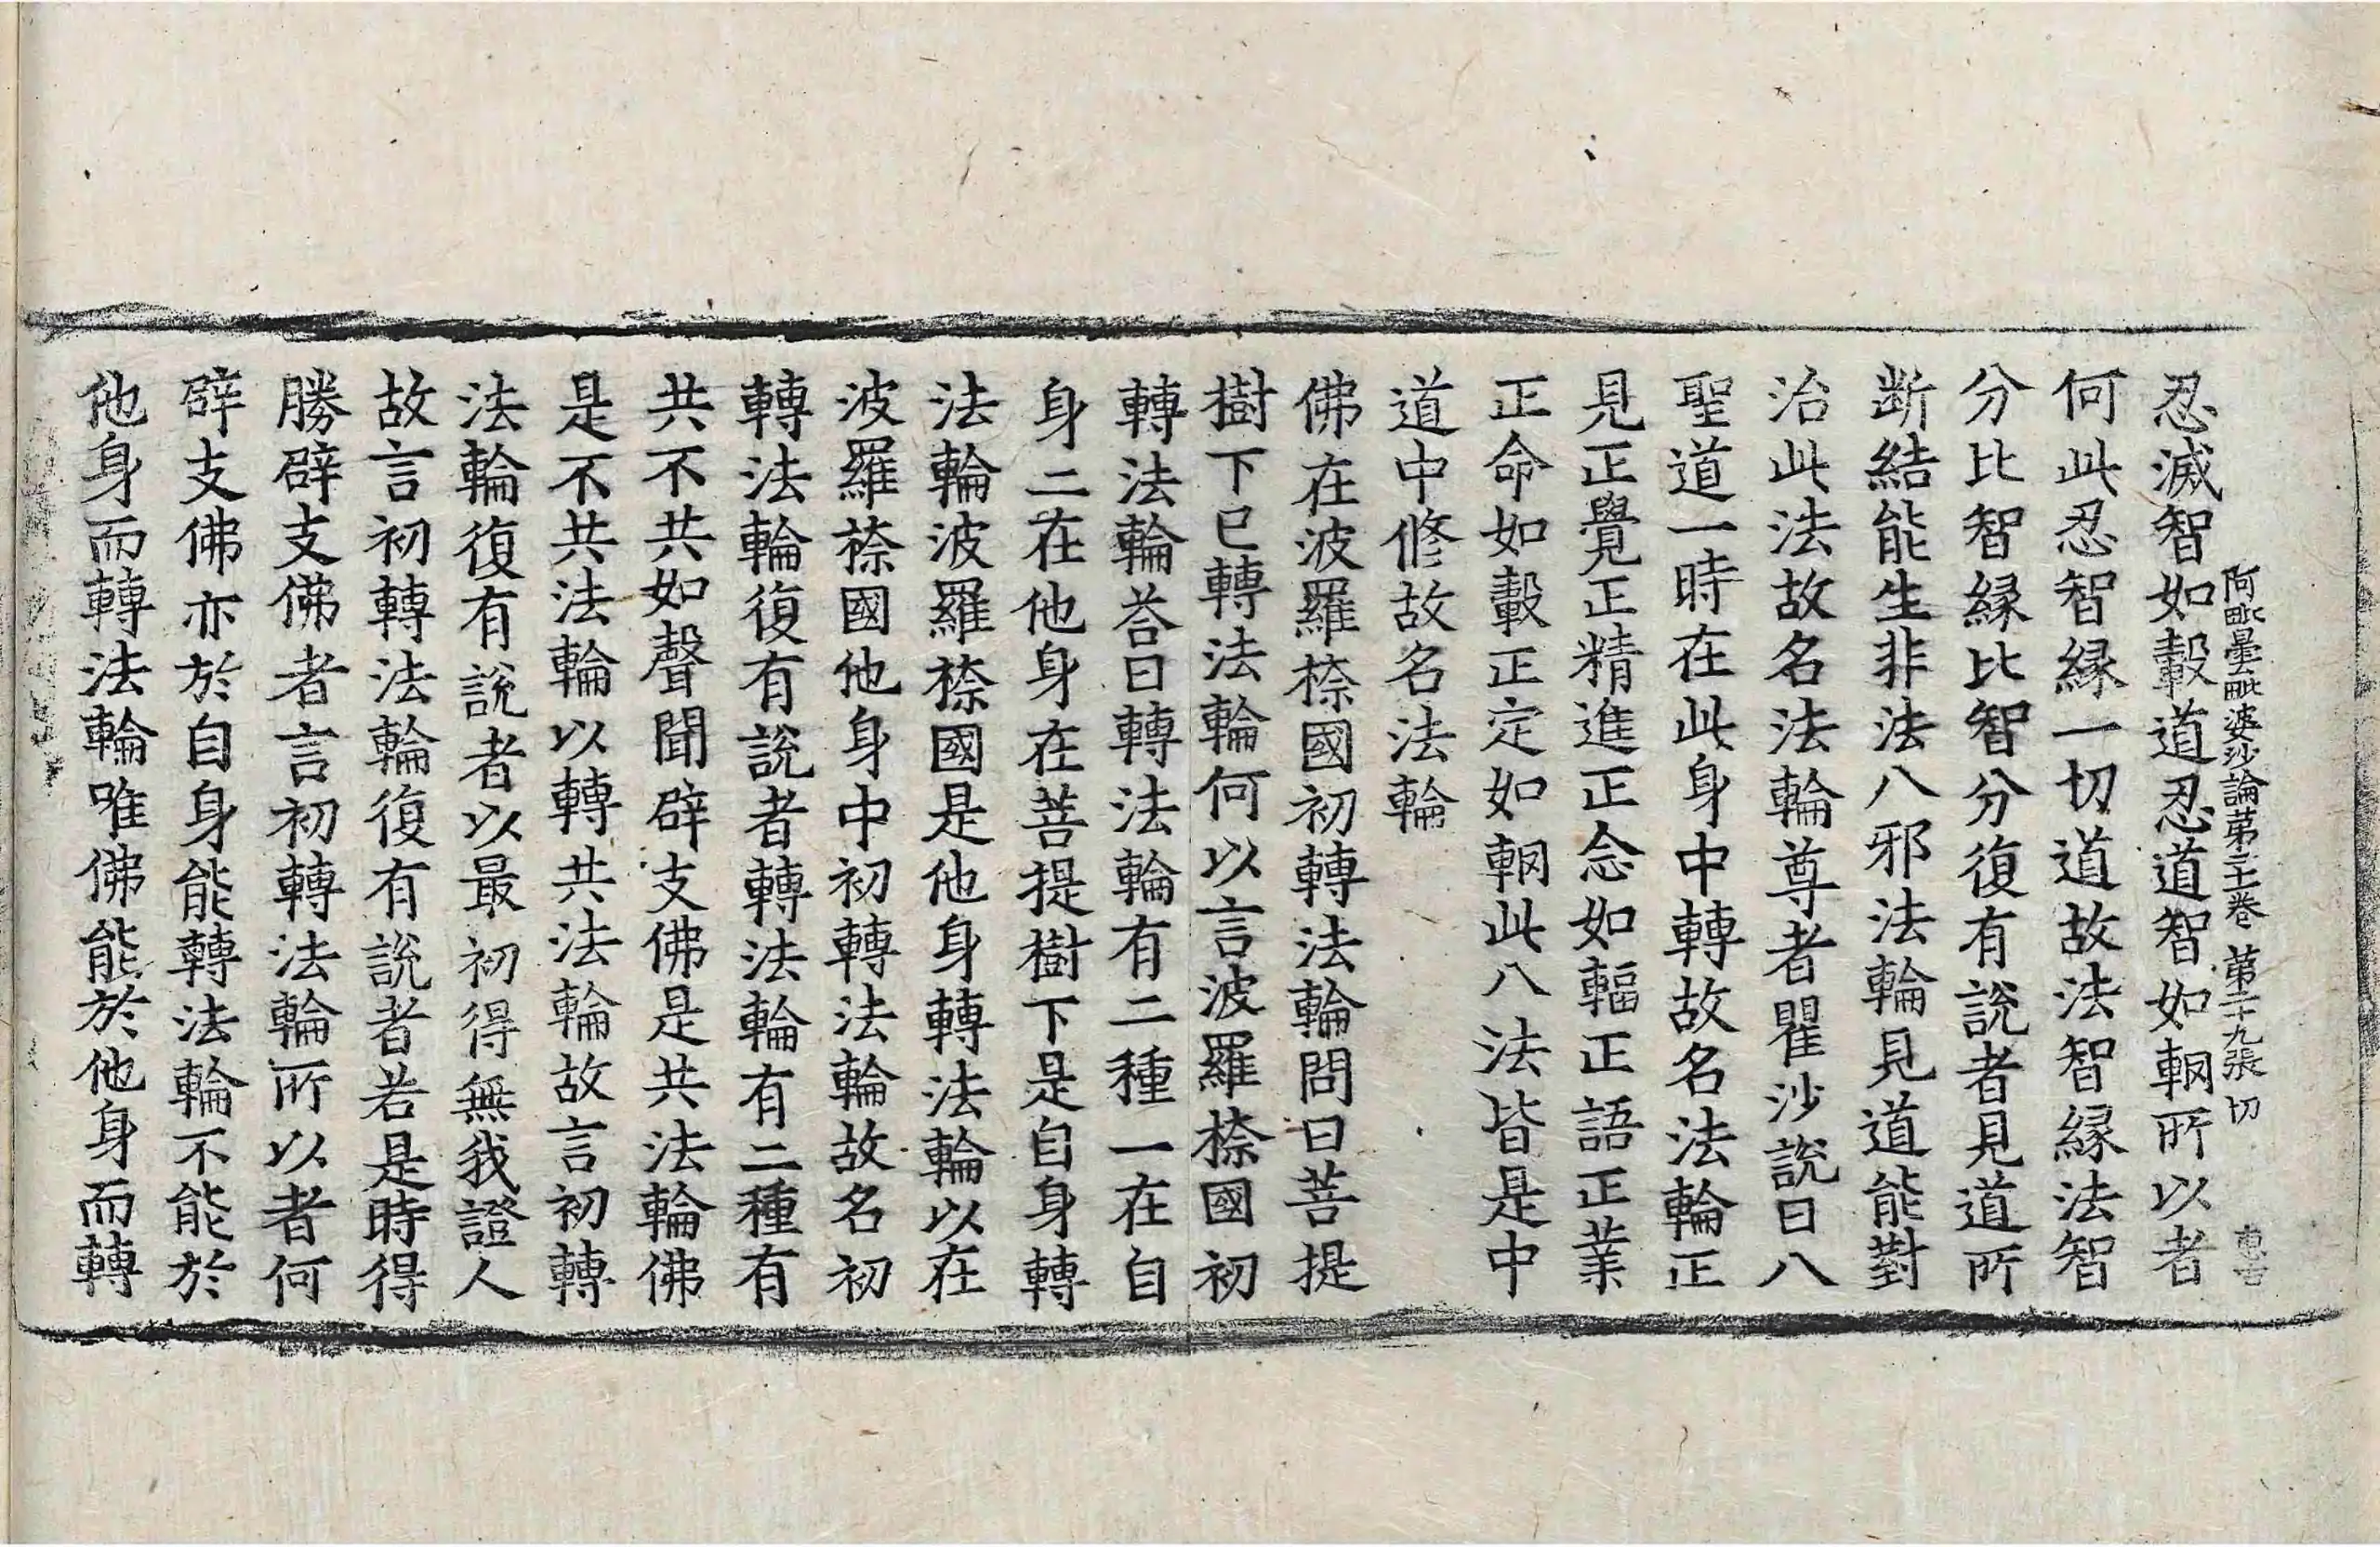 阿毗曇毗婆沙論第二十一卷 第二十九張 切
忍滅智如轂道忍道智如輞所以者
何此忍智緣一切道故法智緣法智
分比智緣比智分復有說者見道所
斷結能生非法八邪法輪見道能對
治此法故名法輪尊者瞿沙說曰八
聖道一時在此身中轉故名法輪正
見正覺正精進正念如輻正語正業
正命如轂正定如輞此八法皆是中
道中修故名法輪
佛在波羅㮈國初轉法輪問曰菩提
樹下已轉法輪何以言波羅㮈國初
轉法輪荅曰轉法輪有二種一在自
身二在他身在菩提樹下是自身轉
法輪波羅㮈國是他身轉法輪以在
波羅㮈國他身中初轉法輪故名初
轉法輪復有說者轉法輪有二種有
共不共如聲聞辟支佛是共法輪佛
是不共法輪以轉共法輪故言初轉
法輪復有說者以最初得無我證人
故言初轉法輪復有說者若是時得
勝辟支佛者言初轉法輪所以者何
辟支佛亦於自身能轉法輪不能於
他身而轉法輪唯佛能於他身而轉